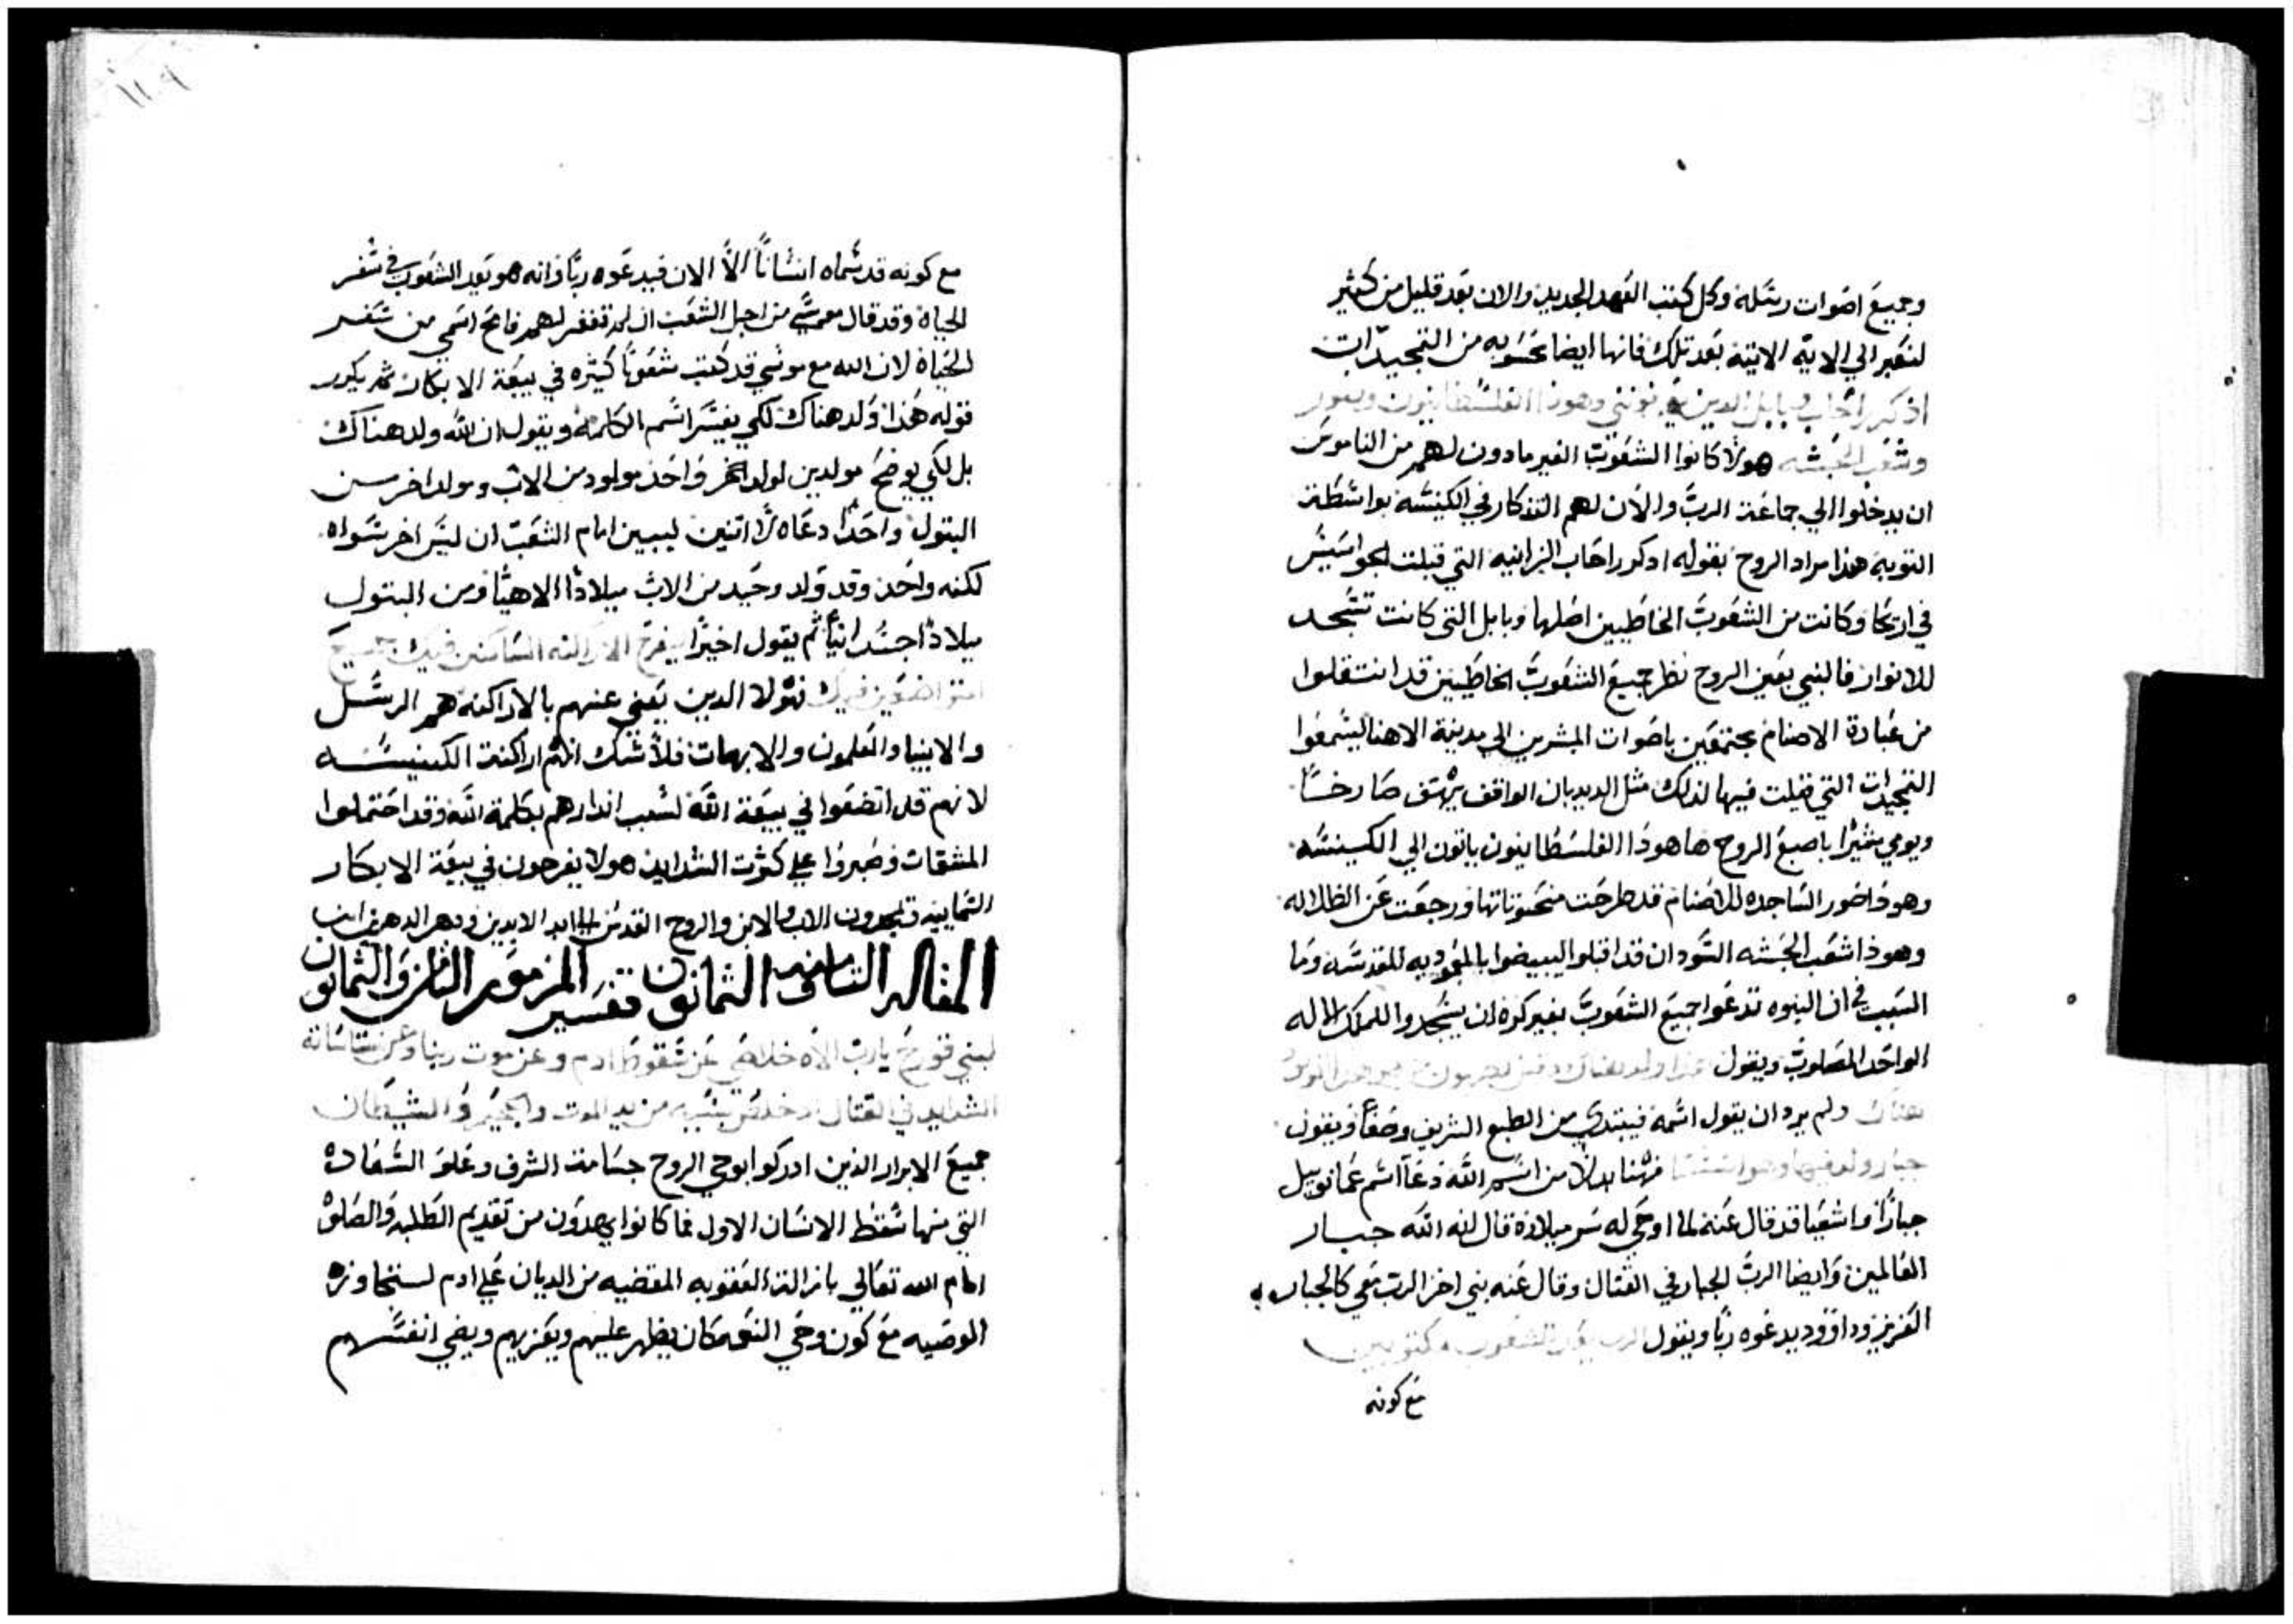 وجميع اصوات رسله وكل كتب العهد الجديد والان بعد قليل من كثير
لنعبر الي الايه الاتيه بعد تلك فانها ايضا محسوبه من التمجيدات
اذكر راحاب وبابل الدين يعرفونني وهوذا الفلسطانيون وصور
وشعب الحبشه هولا كانوا الشعوب الغير مادون لهم من الناموس
ان يدخلوا الي جماعة الرب والان لهم التذكار في الكنيسه بواسطة
التوبة هذا مراد الروح بقوله اذكور راحاب الزانيه التي قبلت الجواسيس
في اريحا وكانت من الشعوب الخاطيين اصلها وبابل التي كانت تسجد
للاوثان فالنبي بعين الروح نظر جميع الشعوب الخاطيين قد انتقلوا
من عبادة الاصنام مجتمعين باصوات المبشرين الي مدينة الاهنا ليسمعوا
التمجيدات التي قيلت فيها لذلك مثل الديدبان الواقف يهتف صارخا
ويومي مشيرا باصبع الروح هاهوذا الفلسطانيون ياتون الي الكنيسه
وهوذا صور الساجده للاصنام قد طرحت منحوتاتها ورجعت عن الظلاله
وهوذا شعب الحبشه السودان قد اقبلوا ليبيضوا بالمعموديه المقدسه وما
السبب في ان النبوه تدعوا جميع الشعوب بغير كره ان يسجدوا للملك الاله
الواحد المصلوب ويقول هذا ولد هناك
هناك ولم يرد ان يقول اسمه فيبتدي من الطبع الشريف وصفا ويقول
جبار ولد فيها وهو اسسها فهنا بدلا من اسم الله دعا اسم عمانوييل
جبارا واشعيا قد قال عنه لما اوحي له سر ميلاده قال انه الله جبار
العالمين وايضا الرب الجبار في القتال وقال عنه نبي اخر الرب معي كالجبار
العزيز وداوود يدعوه ربا ويقول الرب يعد الشعوب مكتوبين
مع كونه
مع كونه قد سماه انسانا الا الان فيدعوه ربا وانه هو يعد الشعوب في سفر
الحياة وقد قال موسي من اجل الشعب ان لم تغفر لهم فامح اسمي من سفر
الحياة لان الله مع موسي قد كتب شعوبا كثيره في بيعة الابكار ثم يكور
قوله هذا ولد هناك لكي يفسر اسم الكلمة ويقول ان الله ولد هناك
بل لكي يوضح مولدين لولد واحد مولود من الاب ومولد اخر من
البتول واحدا دعاه لا اتنين ليبين امام الشعب ان ليس اخر سواه
لكنه واحد وقد ولد وحيد من الاب ميلادا الاهيا ومن البتول
ميلادا جسدانيا ثم يقول اخيرا يفرح الاراكنه الساكنين فيك جميع
المتواضعين فيك فهولا الدين يعني عنهم بالاراكنة هم الرسل
والانبيا والمعلمون والابهات فلا شك انهم اراكنة الكنيسه
لانهم قد اتضعوا في بيعة الله لسبب اندارهم بكلمة الله وقد احتملوا
المشقات وصبروا علي كثرت الشدايد هولا يفرحون في بيعة الابكار
السماييه تمجدون الاب والابن والروح القدس الي ابد الابدين ودهر الدهرين امين
المقاله الثامنه والثمانون تفسير المزمور الثامن والثمانون
لبني قورح يارب الاه خلاصي عن سقوط ادم وعن موت ربنا وعن
الشدايد في القتال وخلص بنيه من يد الموت والجحيم والشيطان
جميع الابرار الذين ادركوا بوحي الروح جسامت الشرف وعلو السعادة
التي منها سقط الانسان الاول فما كانوا يهدون من تقديم الطلبه والصلوة
امام الله تعالي بازالة العقوبه المقضيه من الديان علي ادم
الوصيه مع كون وحي النعمه كان يظهر عليهم ويعزيهم ويضي انفسهم